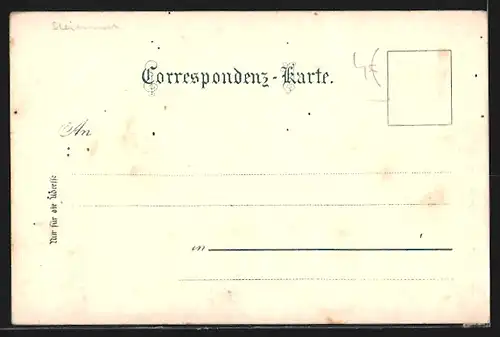 Steiermark
4€
Correspondenz-Karte.
An
Nur für die Adresse
in